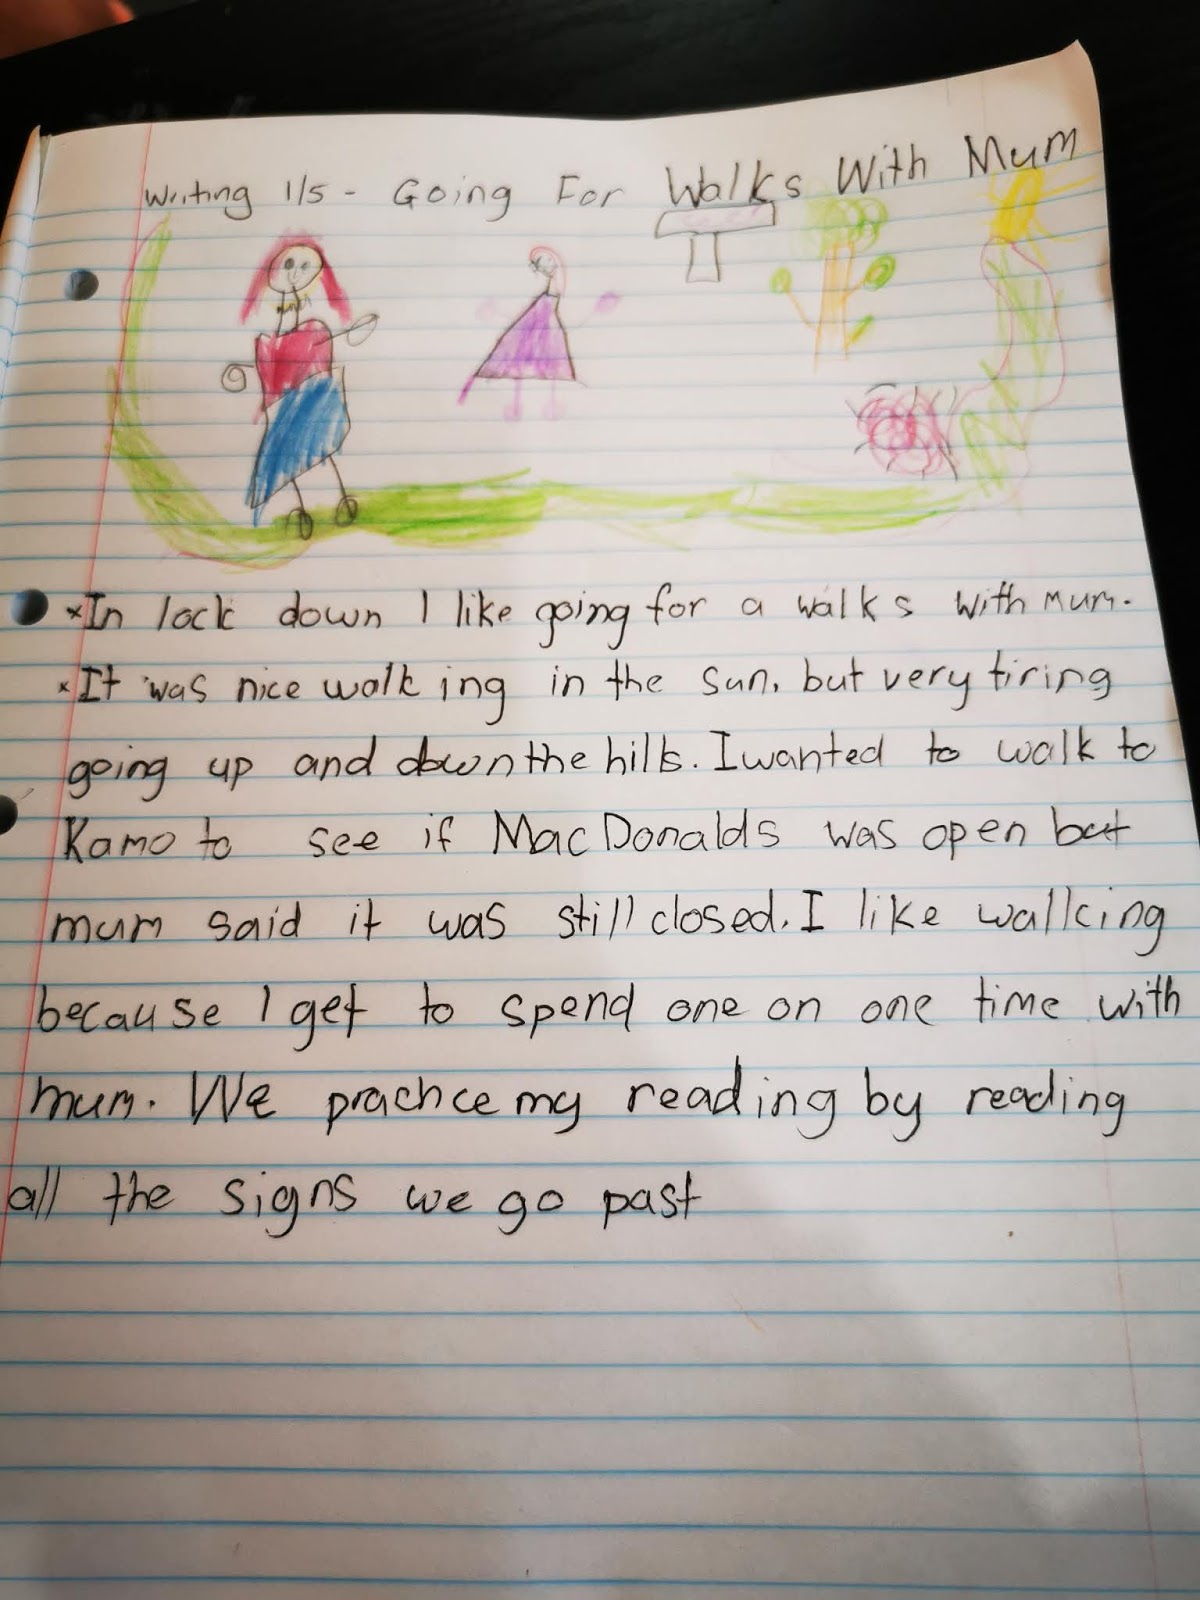 Writing 1/5 - Going For Walks With Mum
×In lock down I like going for a walks with mum.
×It was nice walking in the sun, but very tiring
going up and down the hills. I wanted to walk to
Kamo to see if MacDonalds was open but
mum said it was still closed. I like walking
because I get to spend one on one time with
mum. We practice my reading by reading
all the signs we go past